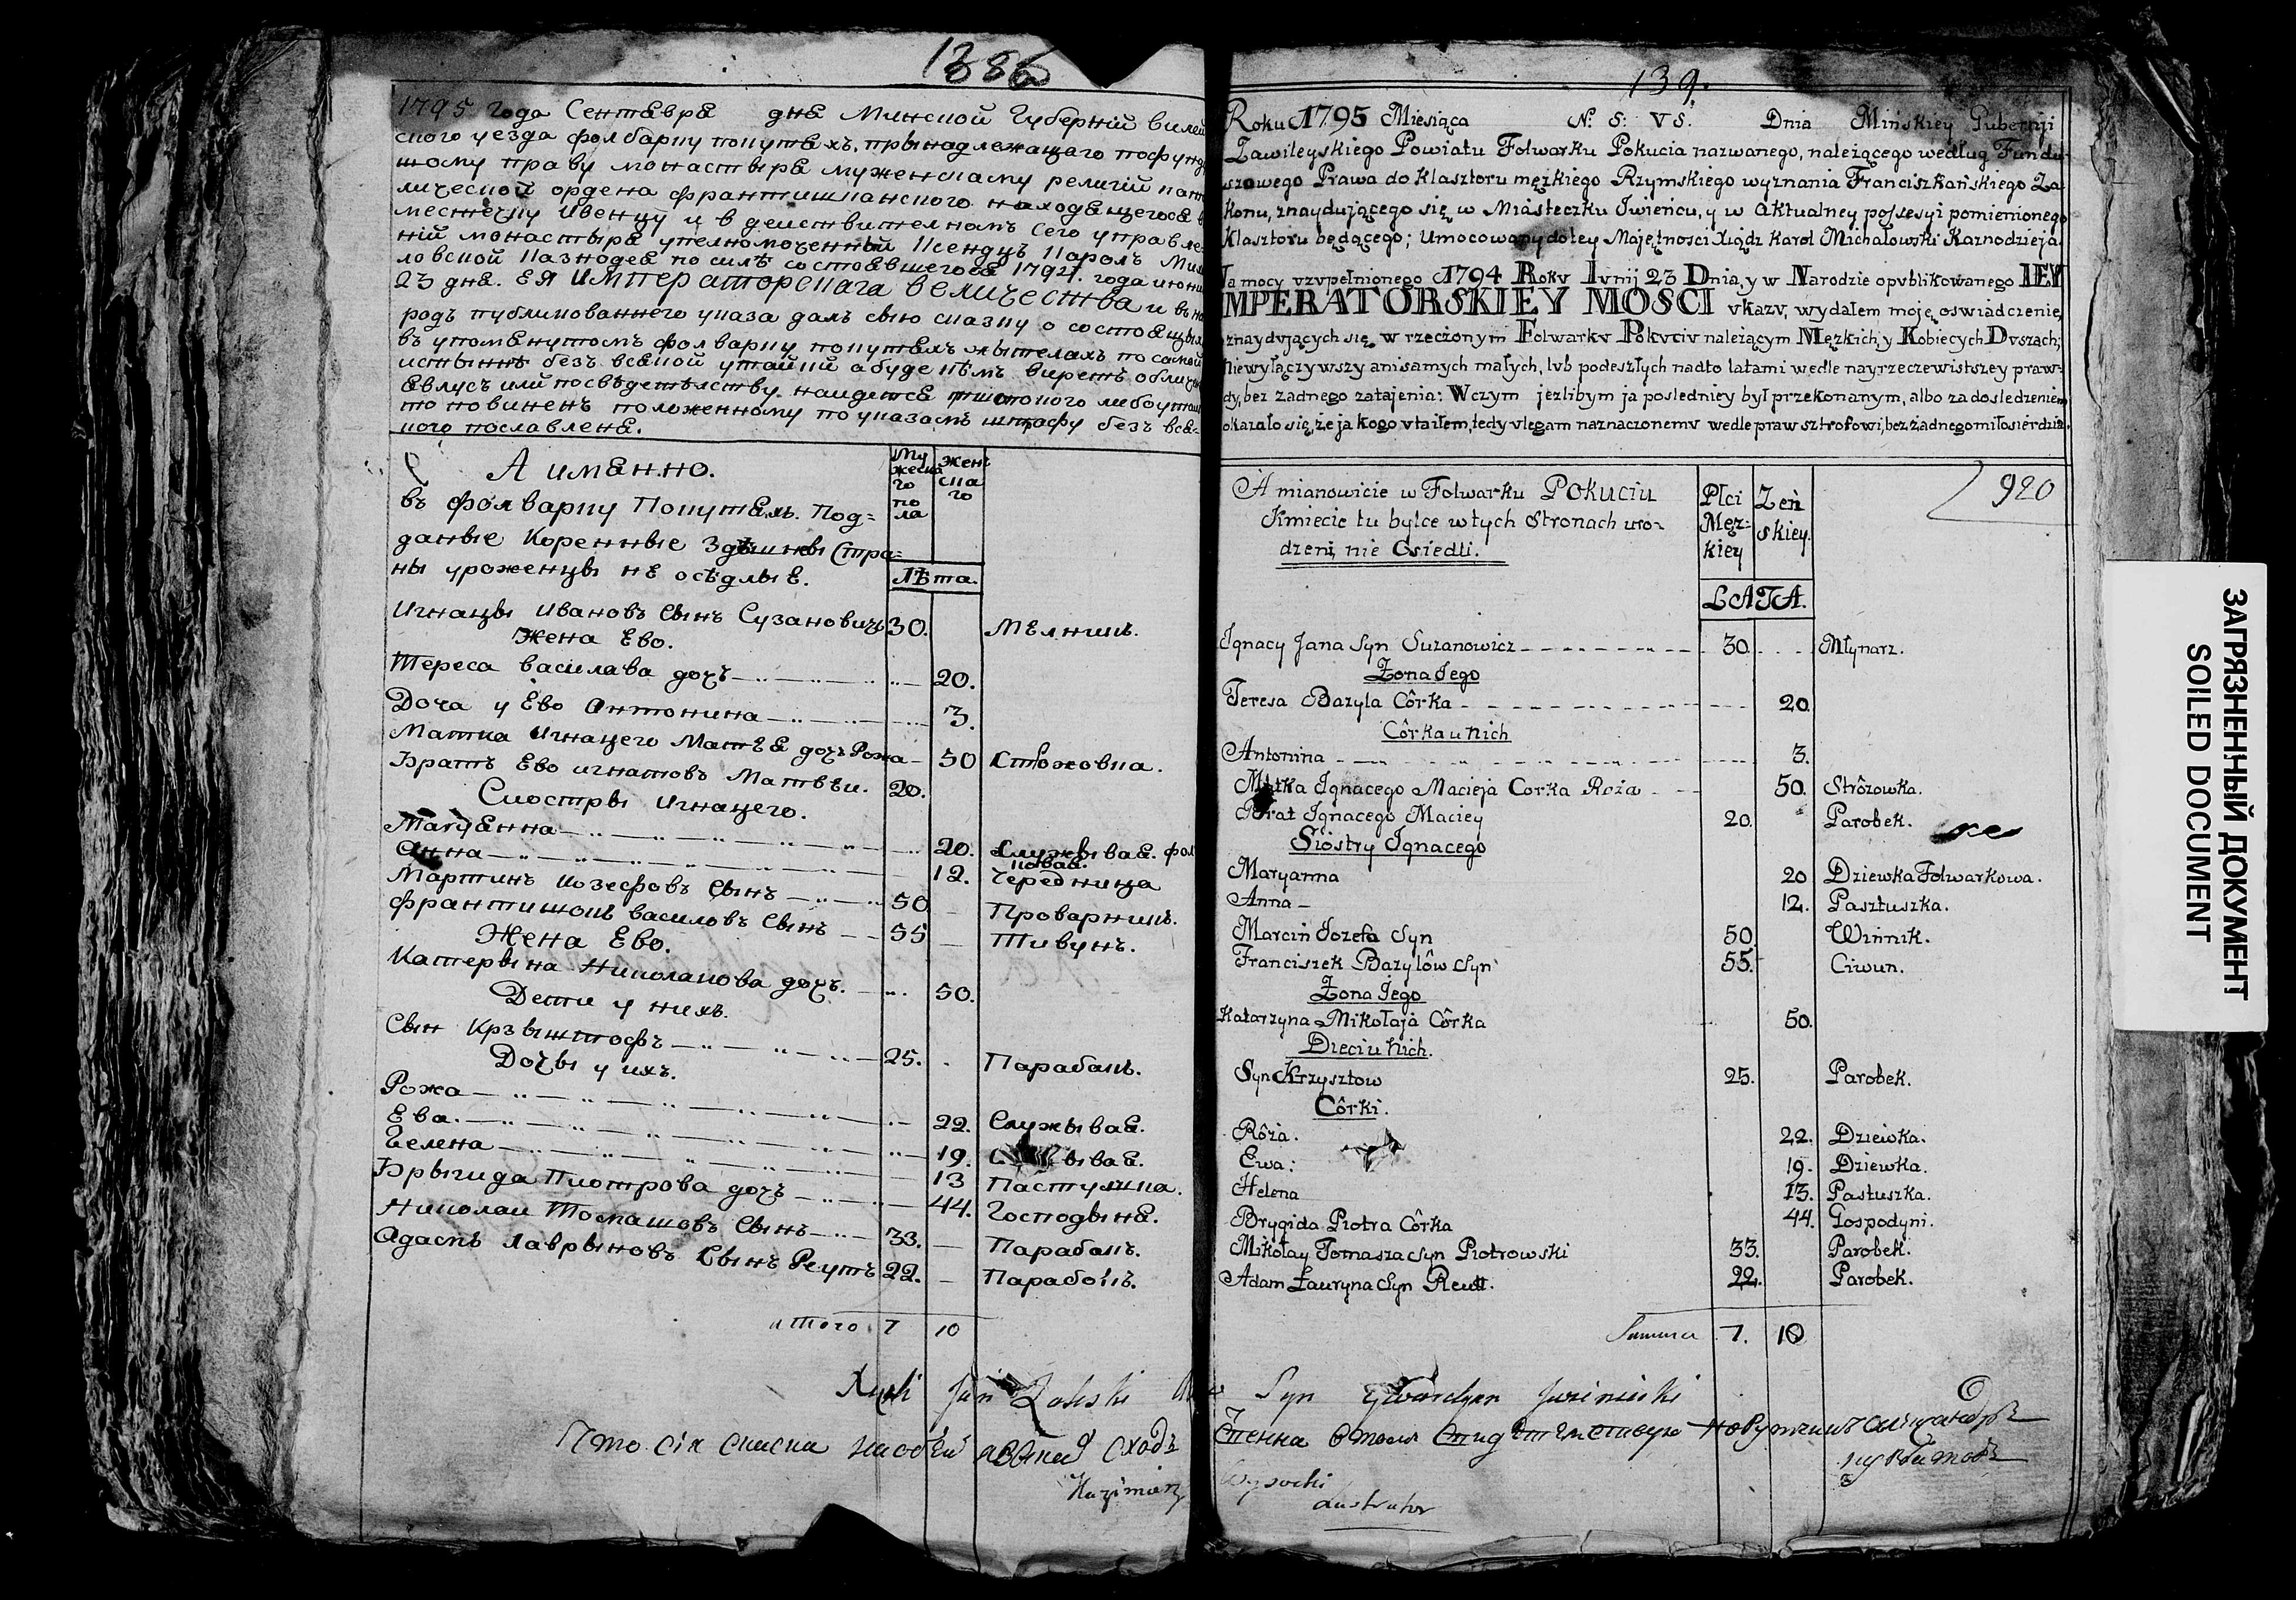 138
1795 года Сентября дня Минской Губерній Вилей
ского уезда фолварку покутяхъ, принадлежащаго пофунду
шому праву монастыря мужескаму религій като
лической ордена францишканского находящегося в
местечку Ивенцу и в действителномъ сего управле
ній монастыря уполномоченный Ксендзъ Кароль Миха
ловской Казнодея по силѣ состоявшегося 1794 года июня
23 дня. ЕЯ ИМПЕРАТОРСКАГА ВЕЛИЧЕСТВА и въ на
родъ публикованнего указа далъ сию сказку о состоящых
въ упомянутомъ фолварку покутяхъ жытеляхъ по самой
истыннѣ безъ всякой утайкій
ного пославленя.
А имянно.
Му жеска го по ла
жен ска го
въ фолварку Покутяхъ. Под=
даные Коренные Здѣшнѣ Стра=
ны уроженцы не осѣдлые.
Лѣта.
Игнацы Ивановъ Сынъ Сузановичъ 30. Мелникъ.
Жена Ево.
Тереса василава дочъ 20.
Доча у Ево Антонина 3.
Матка Игнацего Матѣя дочъ Рожа 50 Стожовка.
Братъ Ево игнатовъ Матвѣи. 20.
Сиостры Игнацего.
Марцянна 20. Служывая. фол
ковая.
Анна 12. Чередница
Мартинъ Иозефовъ Сынъ 50 Проварникъ.
Франтишокъ василовъ Сынъ 55 Тивунъ.
Жена Ево.
Катерына Николаиова дочъ. 50.
Дети у нихъ.
Сын Крзыштофъ 25. Парабокъ.
Дочы у ихъ.
Рожа 22. Служывая.
Ева. 19. ывая.
Гелена 13 Пастушка.
Брыгида Пиотрова дочъ 44. Господыня.
Николаи Томашовъ Сынъ 33. Парабокъ.
Адамъ Лаврыновъ Сынъ Реутъ 22. Парабокъ.
итого 7 10
Xiądz Jan Zaleski
Что сія списка
Kazimierz
139.
Roku 1795 Miesiąca N: S: VS: Dnia Mińskiey Guberniji
Zawileyskiego Powiatu Folwarku Pokucia nazwanego, należącego według Fundu-
szowego Prawa do Klasztoru męzkiego Rzymskiego wyznania Franciszkańskiego Za-
konu, znayduiącego się w Miasteczku Iwieńcu, y w aktualney possesyi pomienionego
Klasztoru będącego; Umocowany do tey Maiętnosci Xiądz Karol Michałowski Kaznodzieja
Ja mocy vzvpełnionego 1794 Rokv Ivnij 23 Dnia, y w Narodzie opvblikowanego IEY
IMPERATORSKIEY MOSCI vkazv, wydałem moję oswiadczenie,
znaydvjących się w rzeczonym Folwarkv Pokvciv należącym Męzkich, y Kobiecych Dvszach;
Niewyłączywszy ani samych małych, lvb podeszłych nadto latami wedle nayrzeczewistszey praw-
dy, bez żadnego zatajenia: Wczym jezlibym ja posledniey był przekonanym, albo za dosledzeniem
okazało się, że ja kogo vtaiłem, tedy vlegam naznaczonemv wedle praw sztrofowi, bez żadnego miłosierdzia.
A mianowicie w Folwarku Pokuciu
Kmiecie tu bylce w tych Stronach uro-
dzeni, nie Osiedli.
Płci Męz- kiey
Zeń skiey.
920
LATA.
Ignacy Jana Syn Suzanowicz 30. Młynarz.
Zona Jego
Teresa Bazyla Côrka 20.
Côrka u nich
Antonina 3.
Matka Ignacego Macieja Corka Roża 50. Strôzowka.
Brat Ignacego Maciey 20. Parobek.
Siostry Ignacego
Maryanna 20 Dziewka Folwarkowa.
Anna 12. Pasztuszka.
Marcin Jozefa Syn 50. Winnik.
Franciszek Bazylôw Syn 55. Ciwun.
Zona Jego
Katarzyna Mikołaja Côrka 50.
Dzieci u nich.
Syn Krzysztow 25. Parobek.
Côrki.
Rôża. 22. Dziewka.
Ewa: 19. Dziewka.
Helena 13. Pastuszka.
Brygida Piotra Côrka 44. Gospodyni.
Mikołay Tomasza Syn Piotrowski 33. Parobek.
Adam Ławryna Syn Reutt. 22. Parobek.
Summa 7. 10
Wysocki
Lustrator
ЗАГРЯЗНЕННЫЙ ДОКУМЕНТ
SOILED DOCUMENT